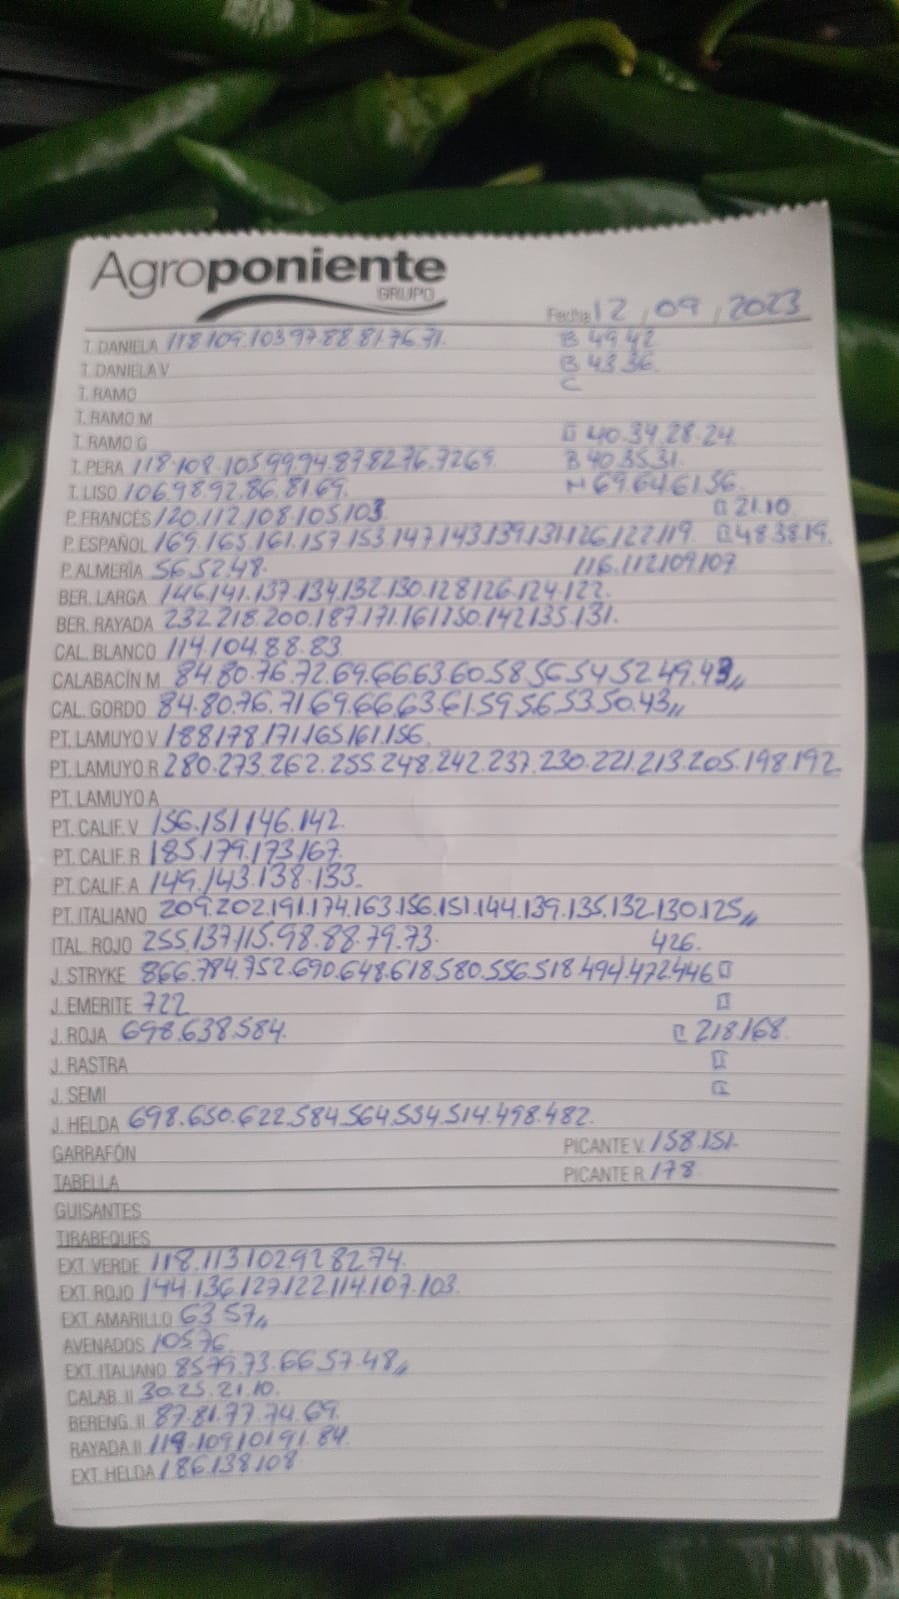 Agroponiente
GRUPO
Fecha 12, 09, 2023
T. DANIELA 118.109.103.97.88.81.76.71. B 49.42
T. DANIELA V B 43.36.
T. RAMO C
T. RAMO M
T. RAMO G 40.34.28.24.
T. PERA 118.108.105.99.94.87.82.76.72.69. B 40.35.31.
T. LISO 106.98.92.86.81.69. M 69.64.61.56.
P. FRANCÉS 120.112.108.105.103 21.10
P. ESPAÑOL 169.165.161.157.153.147.143.139.131.126.122.119. 48.38.19.
P. ALMERÍA 56.52.48. 116.112.109.107.
BER. LARGA 146.141.137.134.132.130.128.126.124.122.
BER. RAYADA 232.218.200.187.171.161.150.142.135.131.
CAL. BLANCO 114.104.88.83.
CALABACÍN M 84.80.76.72.69.66.63.60.58.56.54.52.49.43,,
CAL. GORDO 84.80.76.71.69.66.63.61.59.56.53.50.43,,
PT. LAMUYO V 188.178.171.165.161.156.
PT. LAMUYO R 280.273.262.255.248.242.237.230.221.213.205.198.192.
PT. LAMUYO A
PT. CALIF. V 156.151.146.142.
PT. CALIF. R 185.179.173.167.
PT. CALIF. A 149.143.138.133.
PT. ITALIANO 209.202.191.174.163.156.151.144.139.135.132.130.125,,
ITAL. ROJO 255.137.115.98.88.79.73. 426.
J. STRYKE 866.784.752.690.648.618.580.556.518.494.472.446
J. EMERITE 722
J. ROJA 698.638.584. 218.168.
J. RASTRA
J. SEMI
J. HELDA 698.650.622.584.564.534.514.498.482.
GARRAFÓN PICANTE V. 158.151.
TABELLA PICANTE R. 178
GUISANTES
TIRABEQUES
EXT. VERDE 118.113.102.92.82.74.
EXT. ROJO 144.136.127.122.114.107.103.
EXT. AMARILLO 63.57,,
AVENADOS 105.76.
EXT. ITALIANO 85.79.73.66.57.48,,
CALAB. II 30.25.21.10.
BERENG. II 87.81.77.74.69.
RAYADA II 119.109.101.91.84.
EXT. HELDA 186.138.108